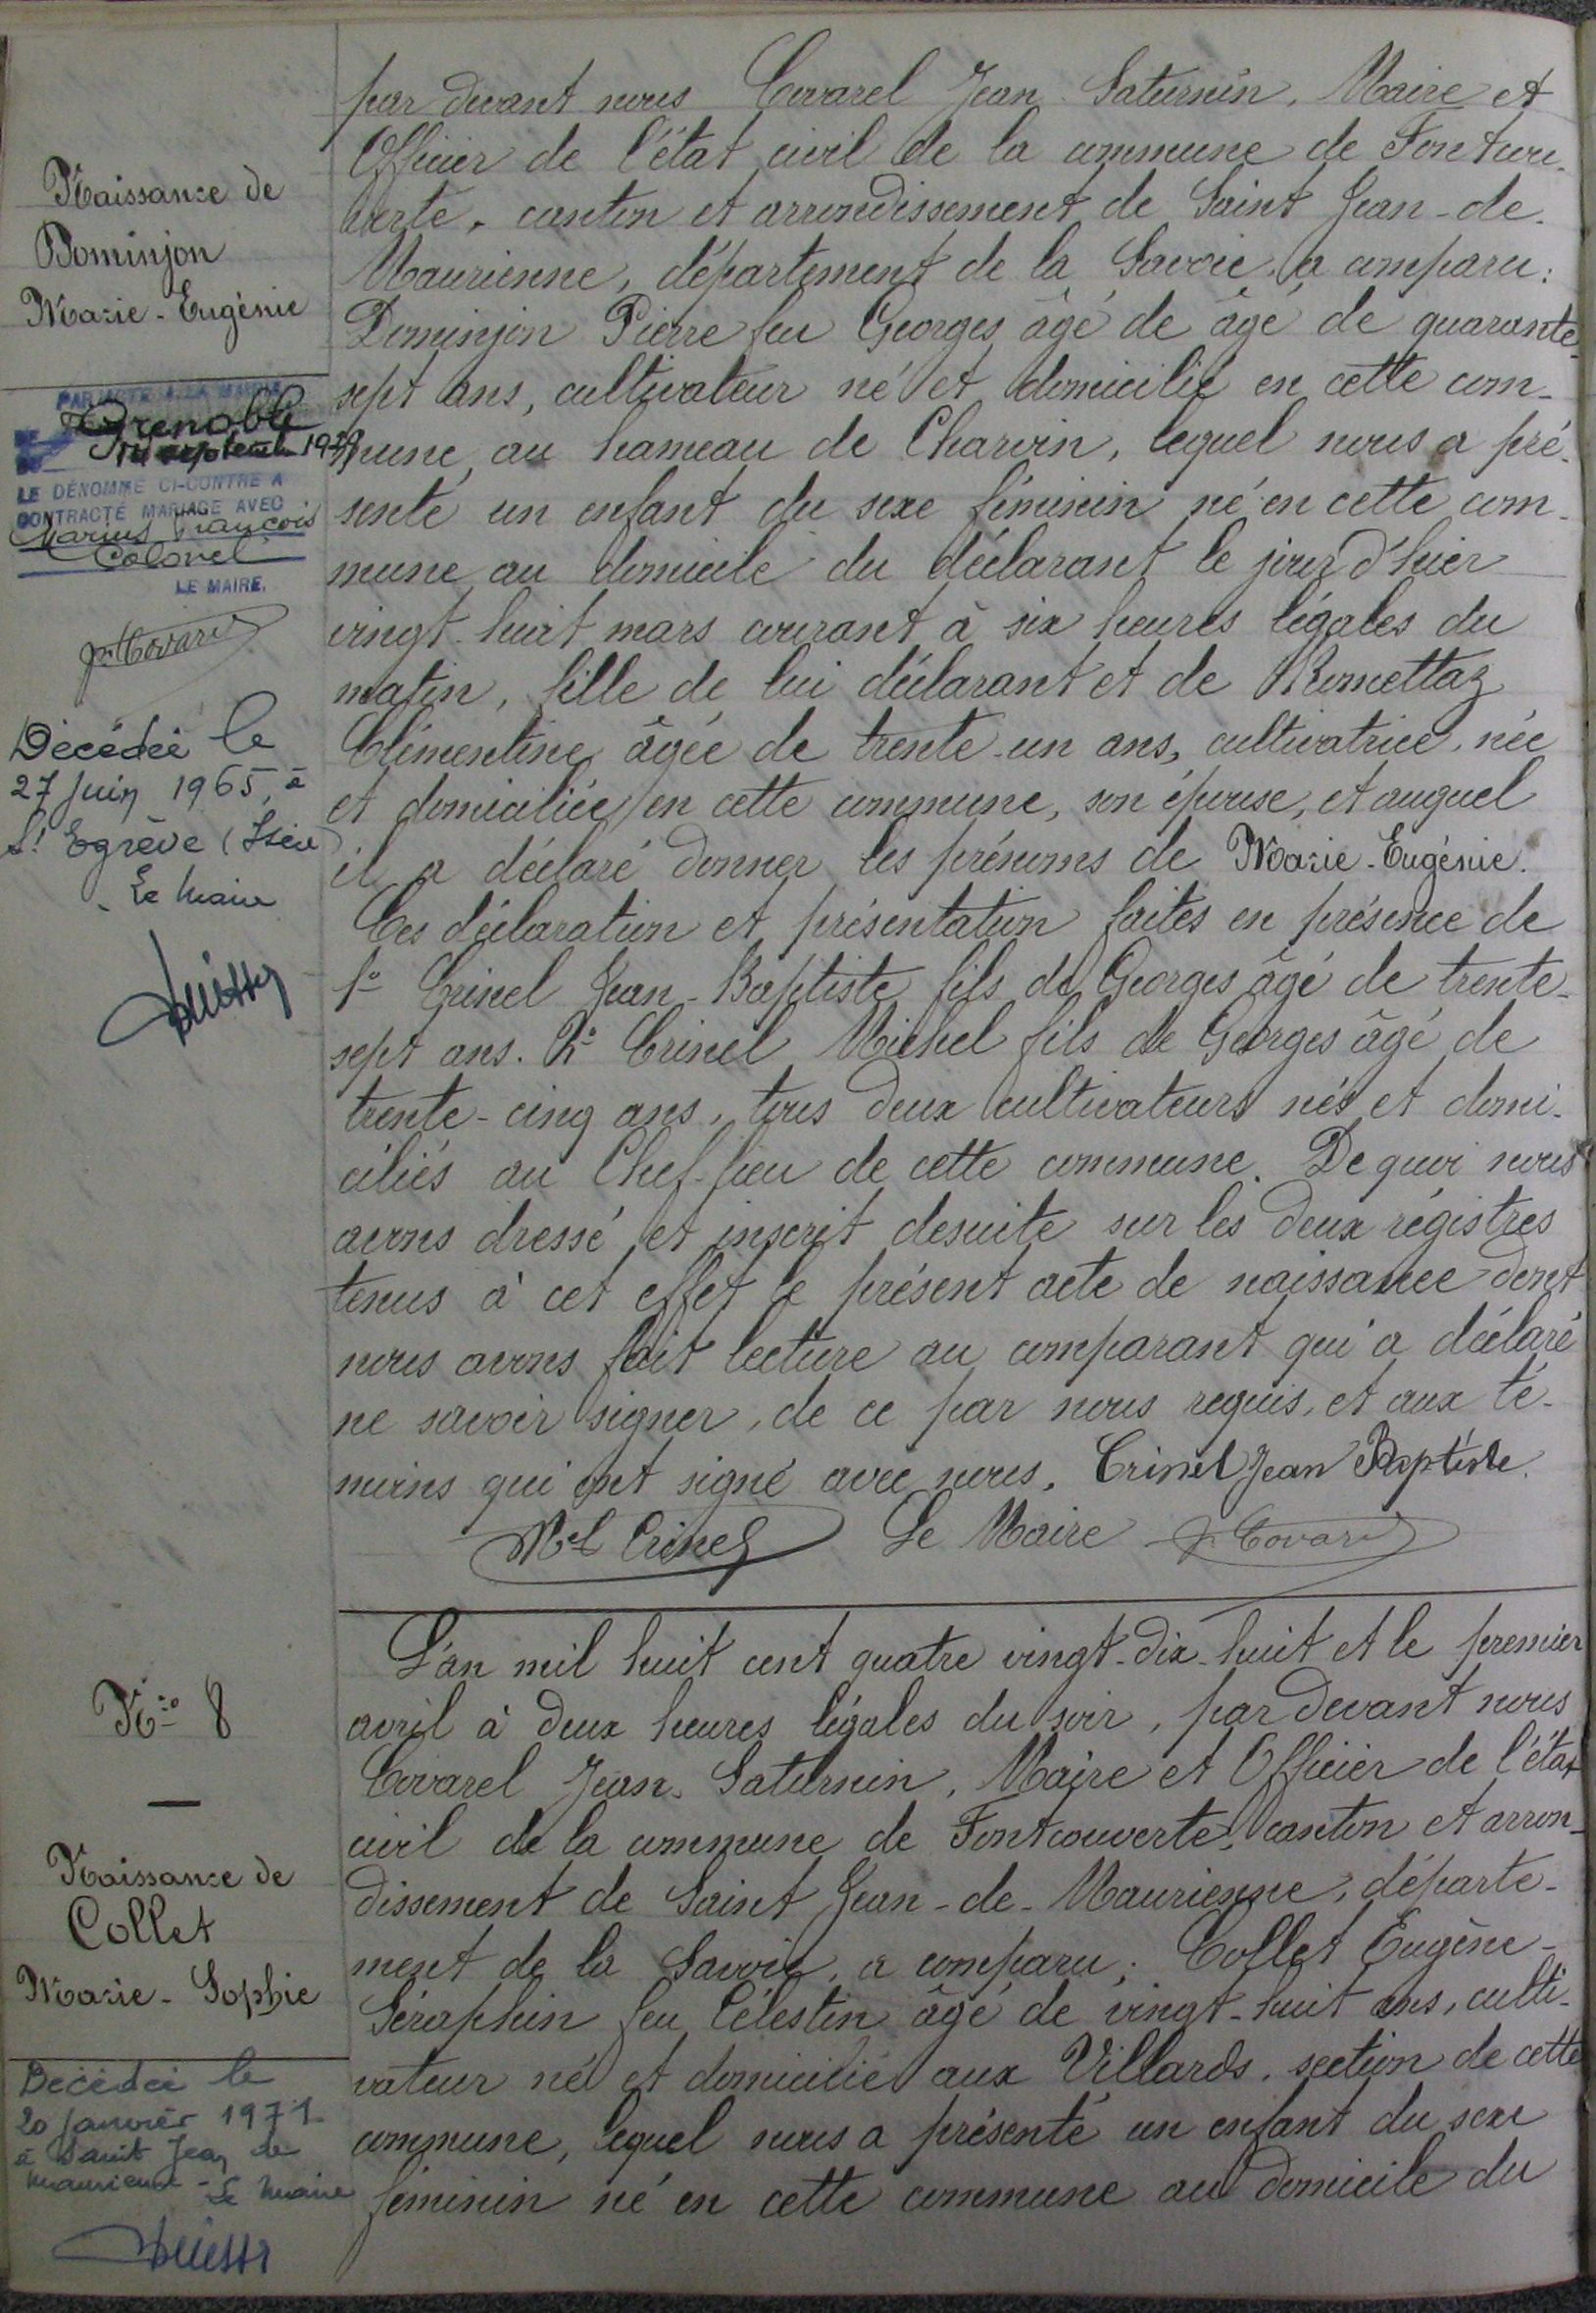 par devant nous Covarel Jean Saturnin, Maire et
Officier de l'état civil de la commune de Fontcou-
verte, canton et arrondissement de Saint Jean-de-
Maurienne, département de la Savoie, a comparu:
Dominjon Pierre feu Georges âgé de âgé de quarante-
sept ans, cultivateur né et domicilié en cette com-
mune au hameau de Charvin, lequel nous a pré-
senté un enfant du sexe féminin né en cette com-
mune au domicile du déclarant le jour d'hier
vingt-huit mars courant à six heures légales du
matin, fille de lui déclarant et de Romettaz
Clémentine âgée de trente-un ans, cultivatrice, née
et domiciliée en cette commune, son épouse, et auquel
il a déclaré donner les prénoms de Marie-Eugénie.
Ces déclaration et présentation faites en présence de
1° Crinel Jean-Baptiste fils de Georges âgé de trente-
sept ans. 2° Crinel Michel fils de Georges âgé de
trente-cinq ans, tous deux cultivateurs nés et domi-
ciliés au Chef-lieu de cette commune. De quoi nous
avons dressé et inscrit desuite sur les deux régistres
tenus à cet effet le présent acte de naissance dont
nous avons fait lecture au comparant qui a déclaré
ne savoir signer, de ce par nous requis, et aux té-
moins qui ont signé avec nous. Crinel Jean Baptiste
Mel Crinel Le Maire Jn Covarel
Naissance de
Dominjon
Marie-Eugénie
PAR ACTE A LA MAIRIE
DE Grenoble
septembre 19
LE DÉNOMMÉ CI-CONTRE A
CONTRACTÉ MARIAGE AVEC
Marius François
Colonel
LE MAIRE,
Jn Covarel
Décédée le
27 Juin 1965, à
St Egrève (Isère)
- Le Maire
L'an mil huit cent quatre vingt-dix-huit et le premier
avril à deux heures légales du soir, par devant nous
Covarel Jean Saturnin, Maire et Officier de l'état
civil de la commune de Fontcouverte, canton et arron-
dissement de Saint Jean-de-Maurienne, départe-
ment de la Savoie, a comparu: Collet Eugène-
Séraphin feu Célestin âgé de vingt-huit ans, culti-
vateur né et domicilié aux Villards, section de cette
commune, lequel nous a présenté un enfant du sexe
féminin né en cette commune au domicile du
N° 8
Naissance de
Collet
Marie-Sophie
Décédée le
20 janvier 1971
à Saint Jean de
Maurienne - Le Maire